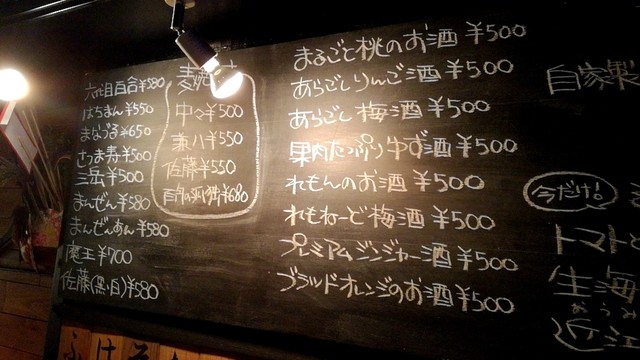 六代目百合¥580
はちまん¥550
まなづる¥650
さつま寿¥500
三岳¥500
まんぜん¥580
まんぜんあん¥580
魔王¥700
佐藤(黒・白)¥580
麦焼
中々¥500
兼八¥550
佐藤¥550
百年の孤独¥680
まるごと桃のお酒¥500
あらごしりんご酒¥500
あらごし梅酒¥500
果肉たっぷりゆず酒¥500
れもんのお酒¥500
れもねーど梅酒¥500
プレミアムジンジャー酒¥500
ブラッドオレンジのお酒¥500
自家製
今だけ!
トマト
生海
おうみ
近江
ふけそ